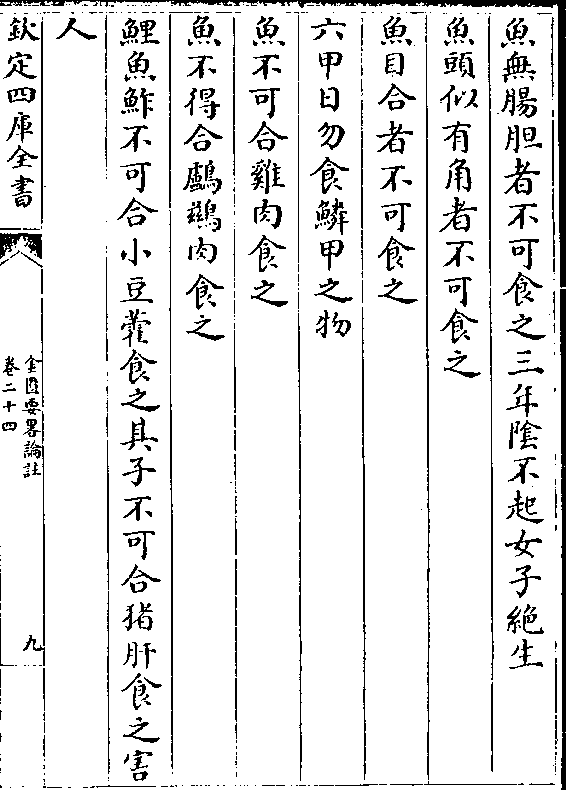 魚無腸胆者不可食之三年陰不起女子絶生
魚頭似有角者不可食之
魚目合者不可食之
六甲日勿食鱗甲之物
魚不可合雞肉食之
魚不得合鸕鷀肉食之
鯉魚鮓不可合小豆藿食之其子不可合猪肝食之害
人
欽定四庫全書
金匱要畧論註
卷二十四
九